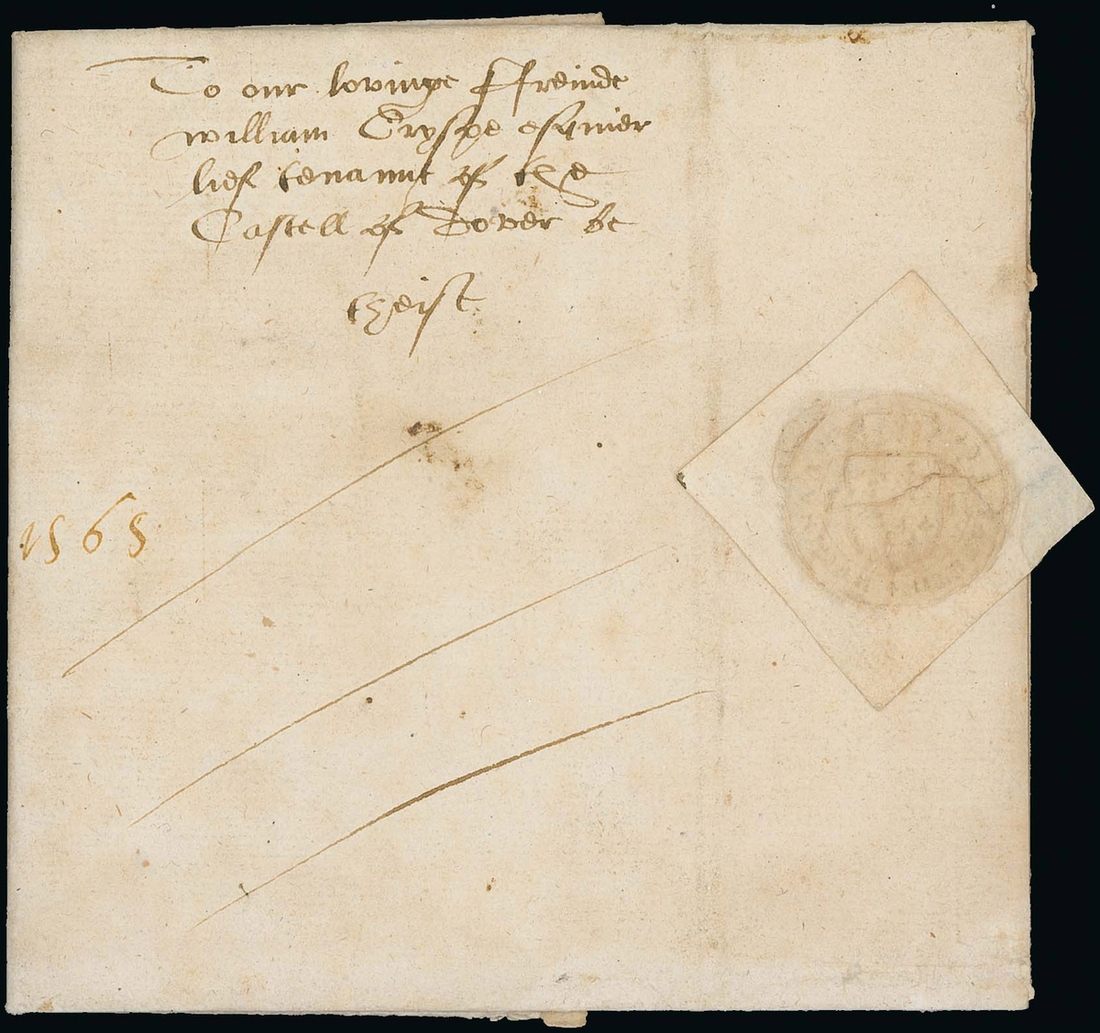 To our lovinge ffreinde
william Cryspe esquier
lief tenannt of the
Castell of Dover be
theist
1568